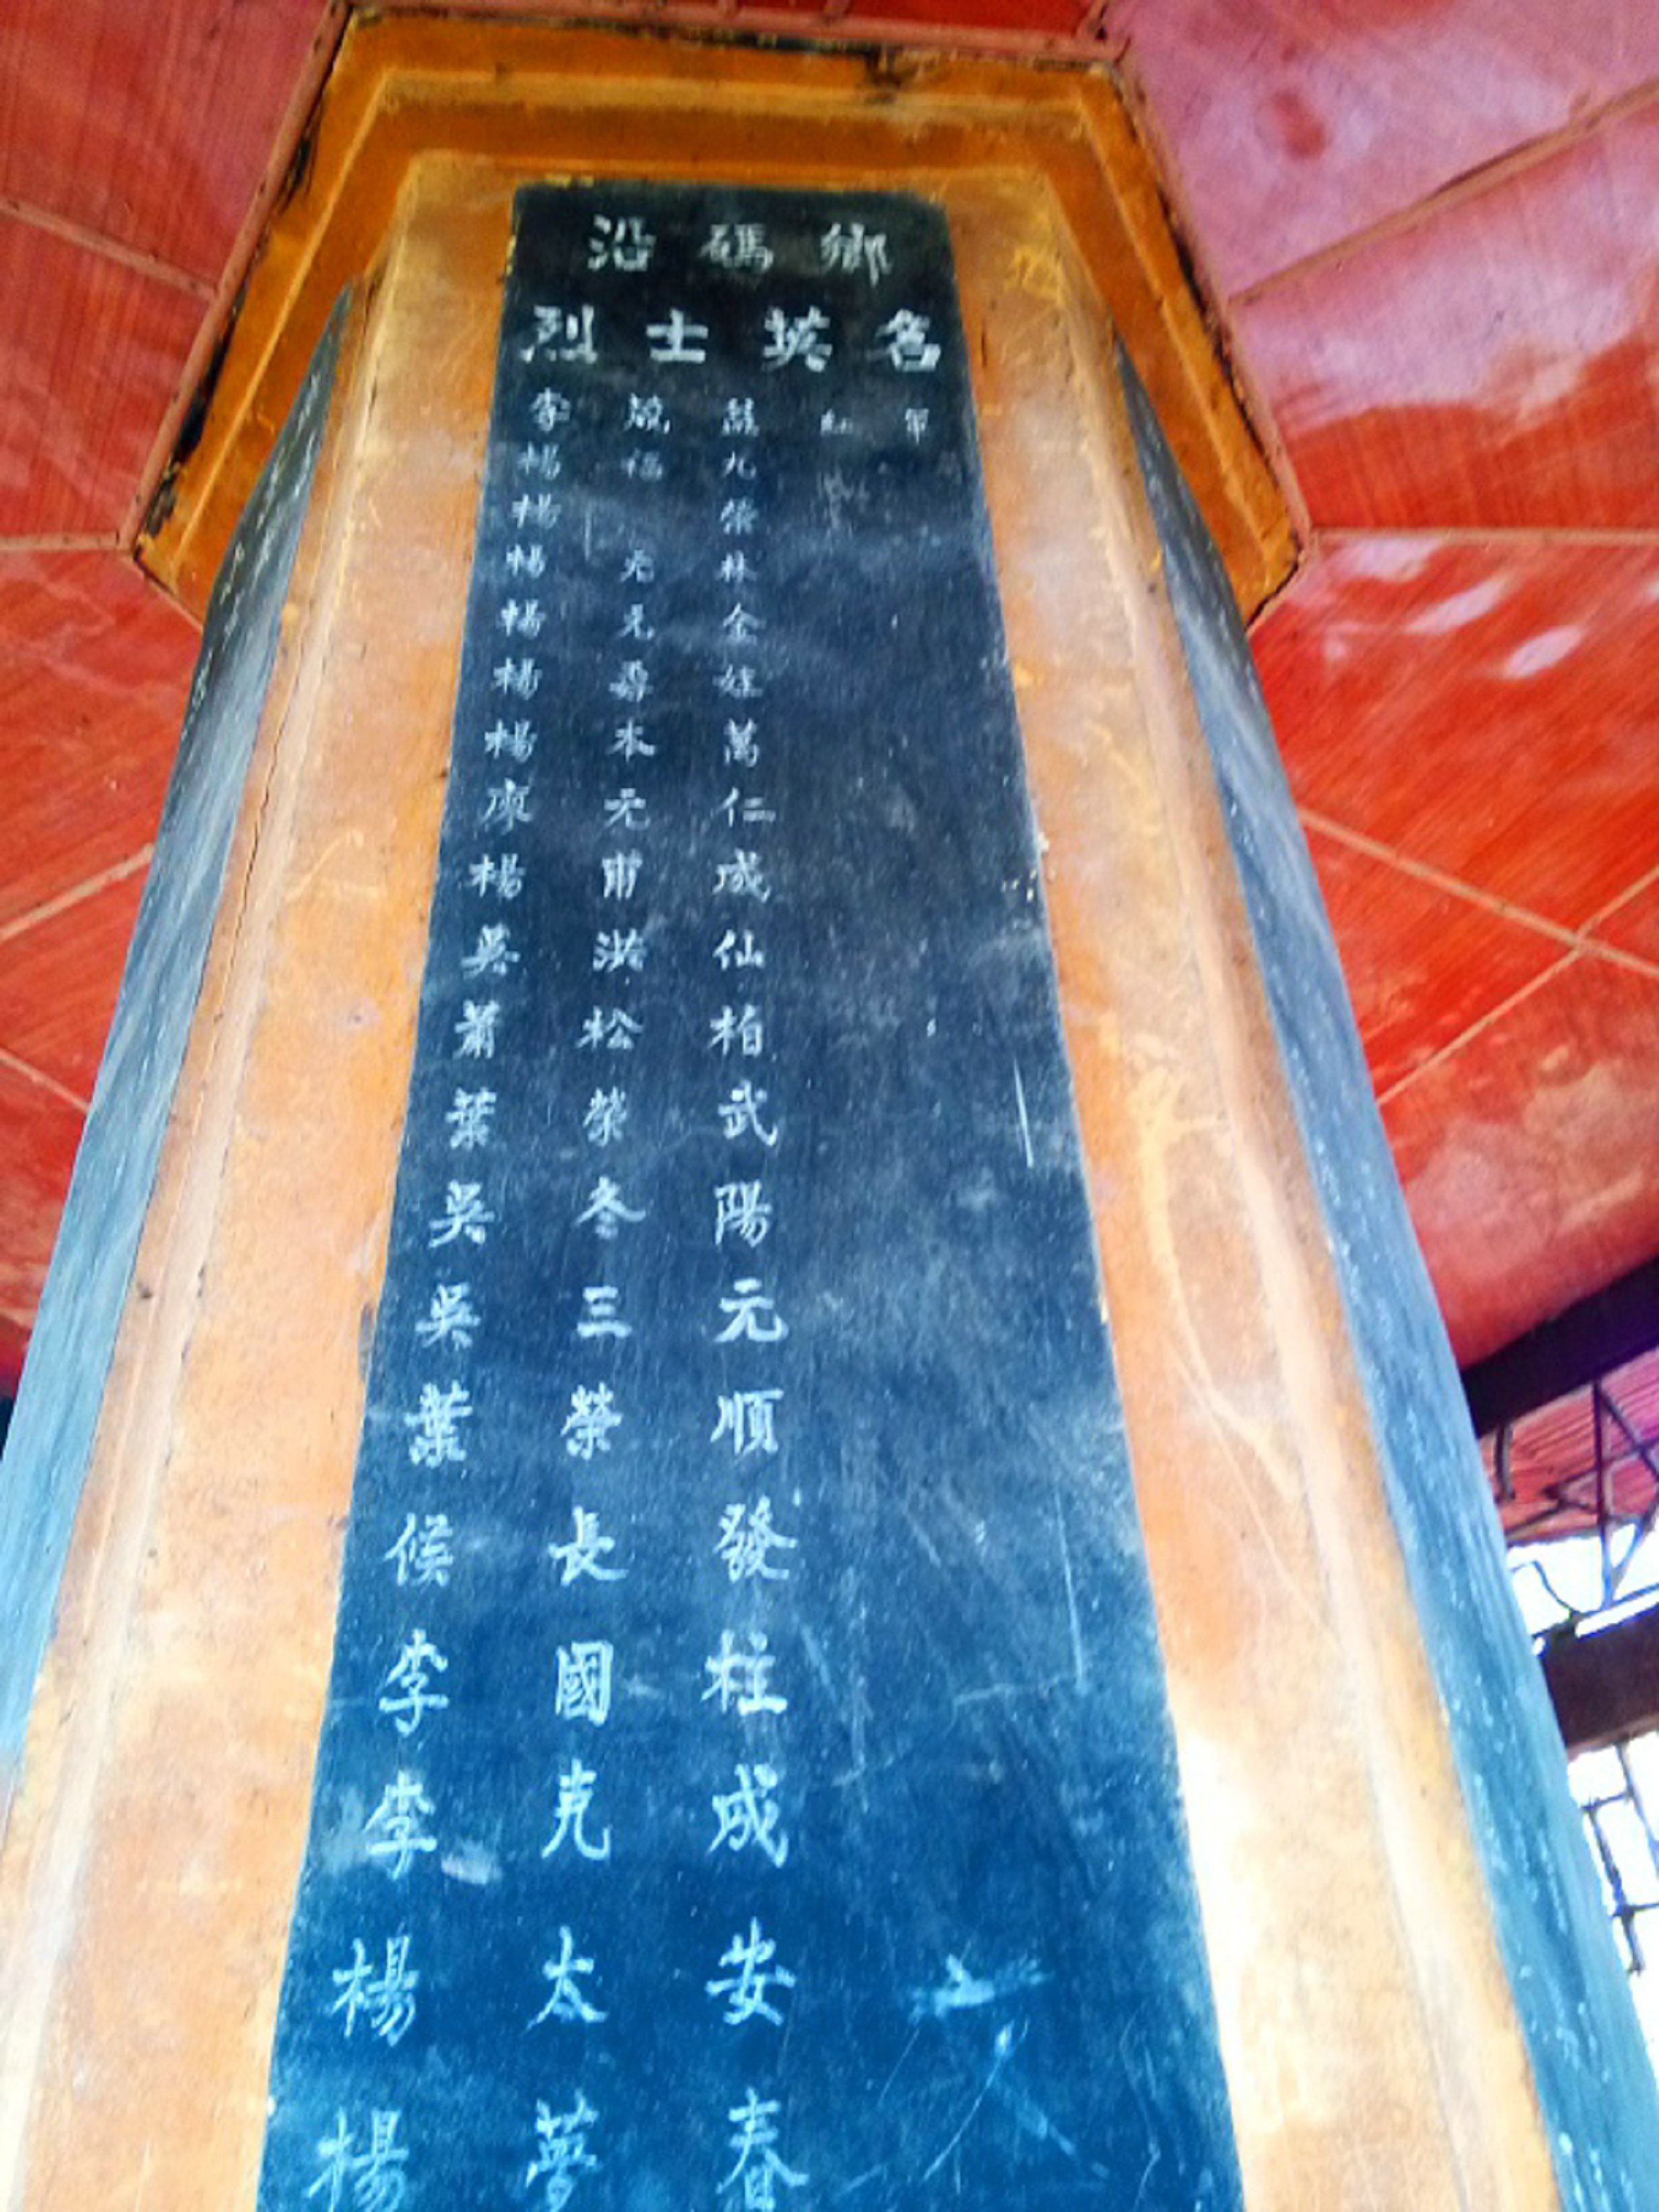 沿碼鄉
烈士英名
李 蘇 紅 軍
楊福九
楊 榮
楊元林
楊元金
楊尋娃
楊本萬
廖元仁
楊甫成
吳洪仙
蕭松柏
葉榮武
吳冬陽
吳三元
葉榮順
候長發
李國柱
李克成
楊太安
楊夢春